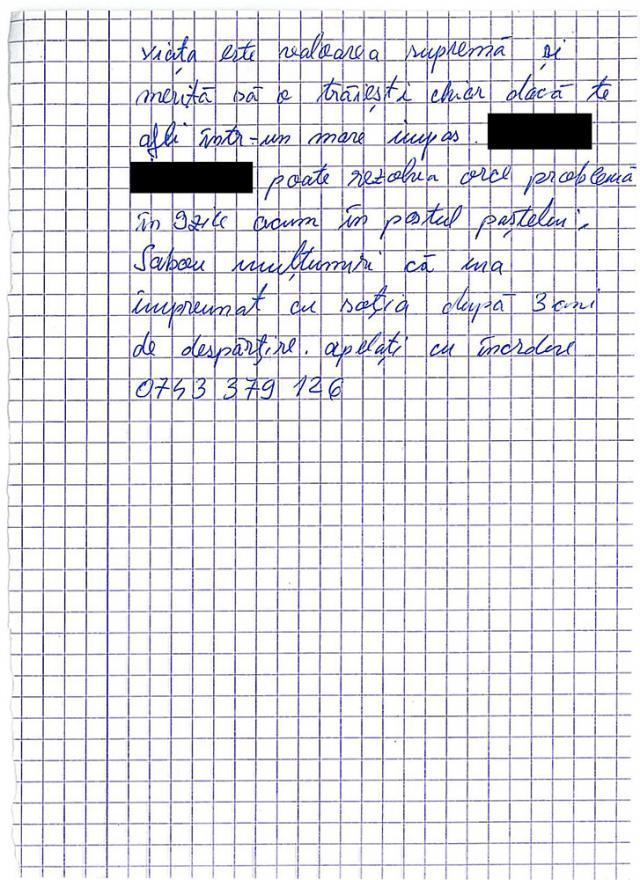 viața este valoarea supremă și
merită să o trăiești chiar dacă te
afli într-un mare impas.
poate rezolva orce problemă
în 9 zile acum în postul paștelui.
Sabou mulțumiri că ma
împreunat cu soția după 3 ani
de despărțire. apelați cu încrdere
0743 379 126